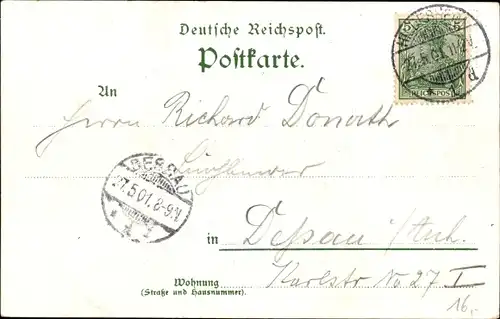 Deutsche Reichspost.
Postkarte.
5
REICHSPOST
27.5.01
An
Herrn Richard Donath
DESSAU
27.5.01.8-9.V.
in Dessau /Anh.
Wohnung
(Straße und Hausnummer).
Karlstr No 27 I
16,-